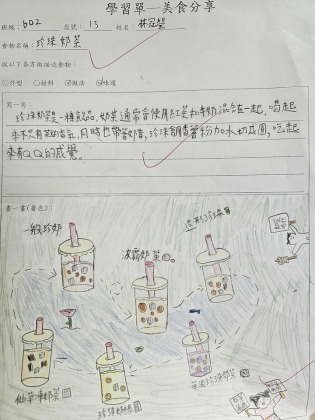 學習單—美食分享
班級：602 座號：13 姓名：林冠縈
食物名稱：珍珠奶茶
從以下各方面描述食物：
□外型 □材料 ☑做法 ☑味道
寫一寫：
珍珠奶茶是一種飲品，奶茶通常會使用紅茶和牛奶混合在一起，喝起
來不只有茶的香氣，同時也帶著奶香，珍珠則靠著粉加水切成圓，吃起
來有QQ的感覺。
畫一畫(著色)：
一般珍奶
波霸奶茶
仙草凍奶茶
珍珠奶綠